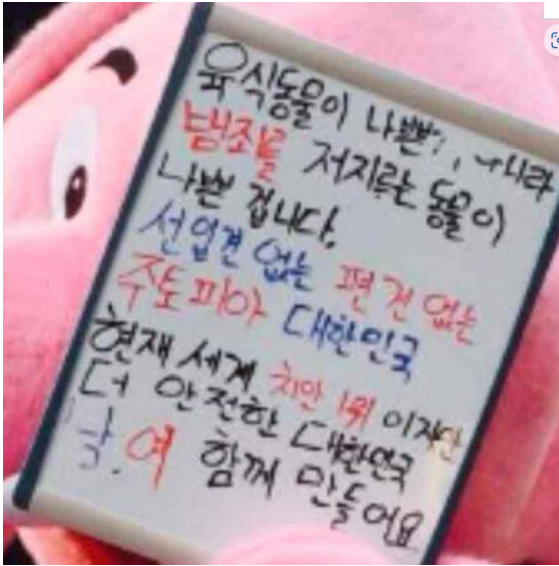 육식동물이 나쁜 아니라
범죄를 저지루는 동물이
나쁜 겁니다.
선입견 없는 편견 없는
주토피아 대한민국
현재 세계 치안 1위 이지만
더 안전한 대한민국
남.여 함께 만들어요